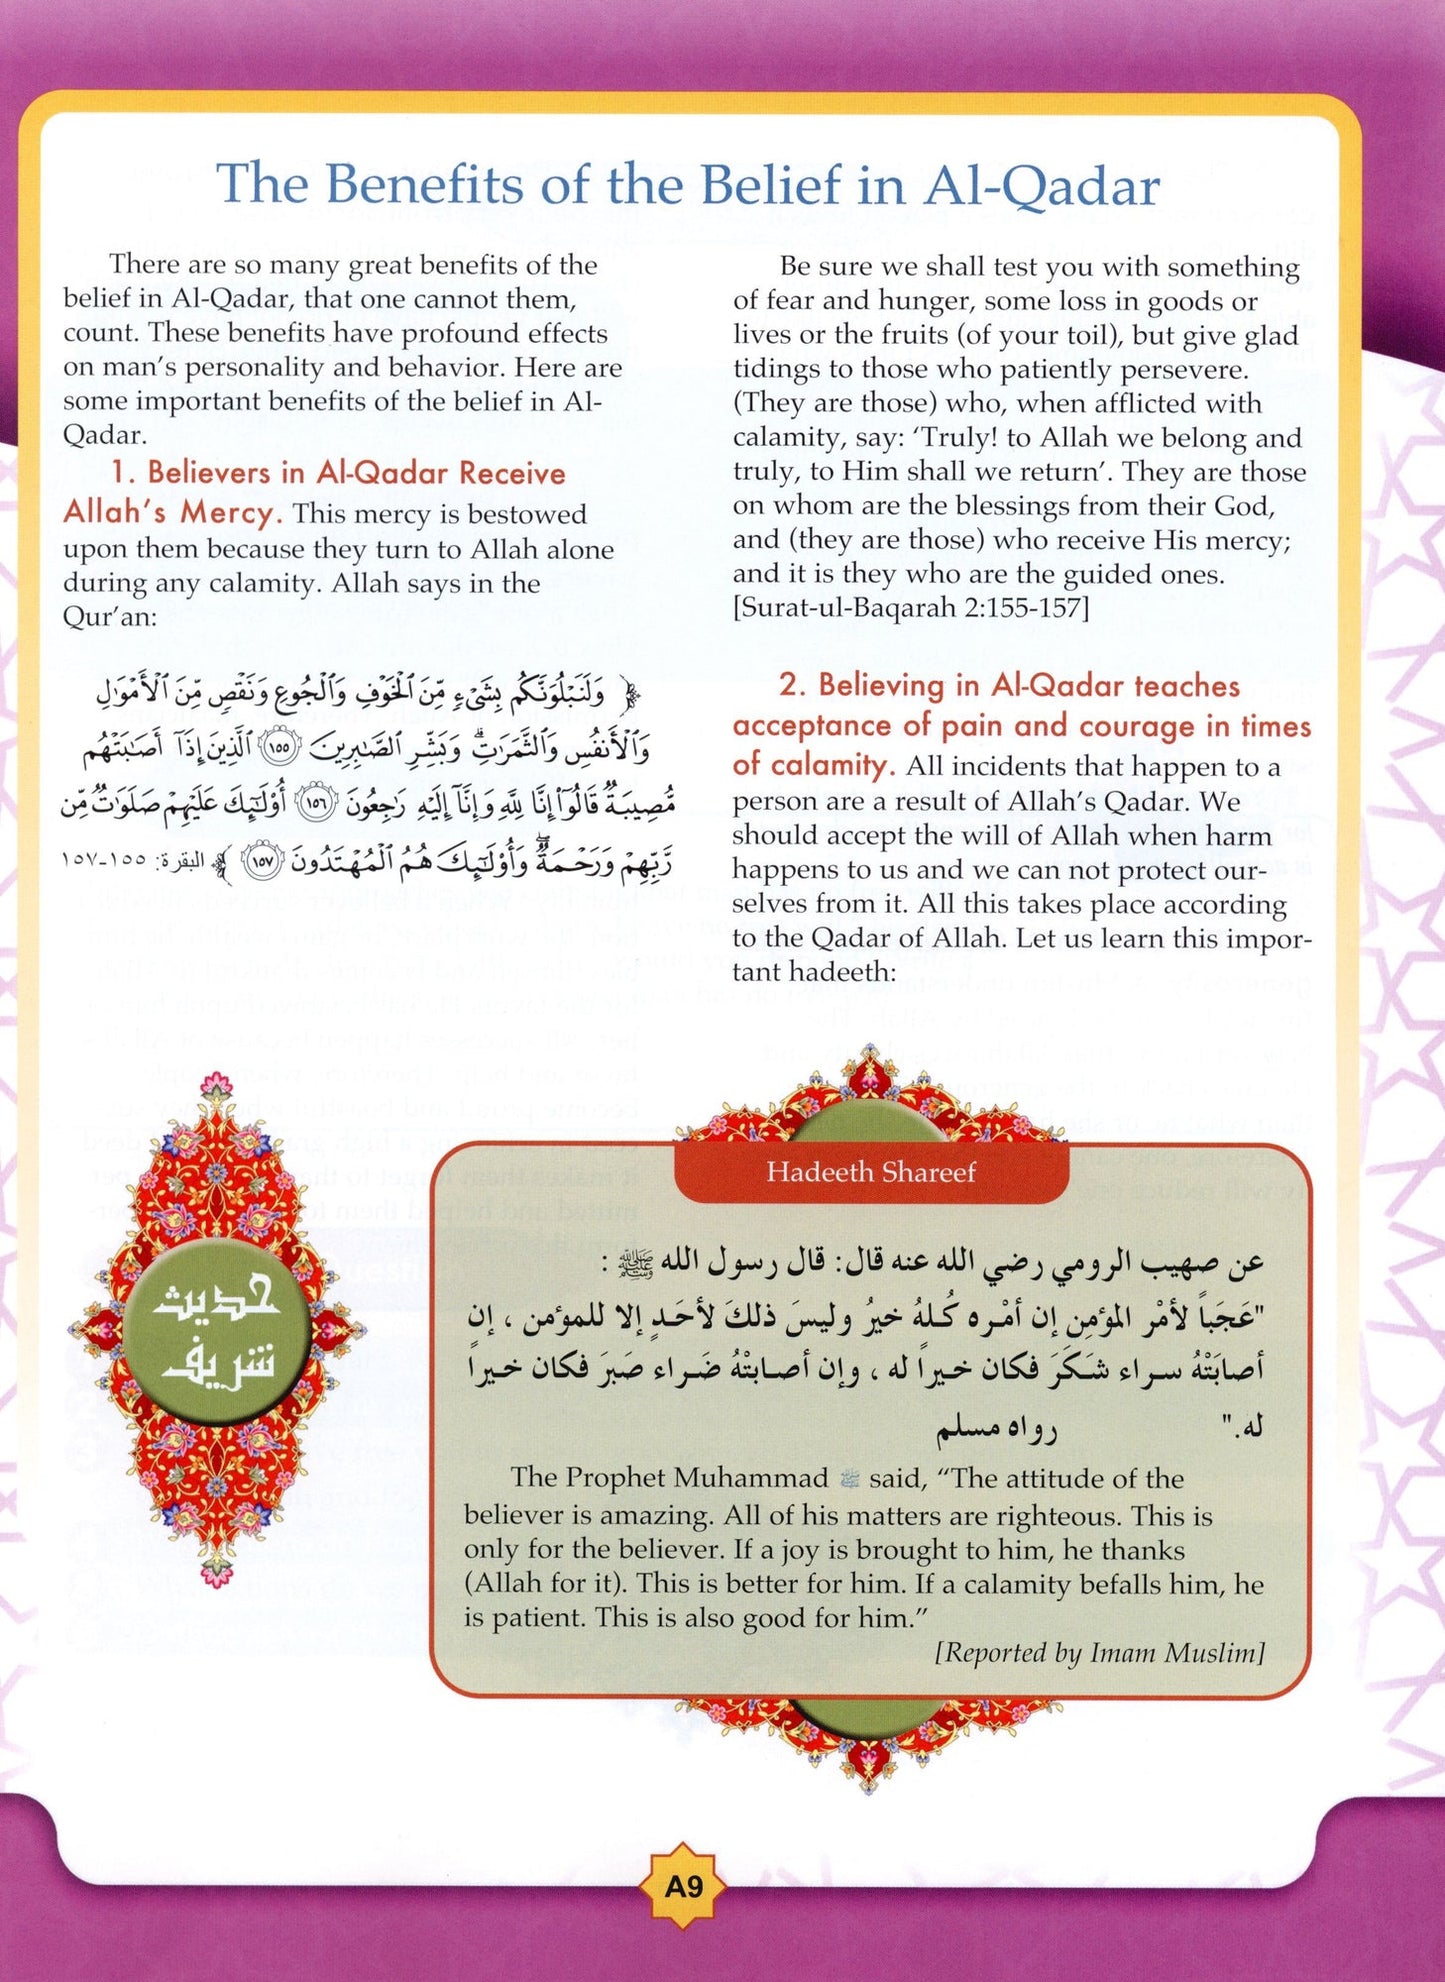 The Benefits of the Belief in Al-Qadar
There are so many great benefits of the
belief in Al-Qadar, that one cannot them,
count. These benefits have profound effects
on man's personality and behavior. Here are
some important benefits of the belief in Al-
Qadar.
1. Believers in Al-Qadar Receive
Allah's Mercy. This mercy is bestowed
upon them because they turn to Allah alone
during any calamity. Allah says in the
Qur'an:
﴿ وَلَنَبْلُوَنَّكُم بِشَيْءٍ مِّنَ ٱلْخَوْفِ وَٱلْجُوعِ وَنَقْصٍ مِّنَ ٱلْأَمْوَٰلِ
وَٱلْأَنفُسِ وَٱلثَّمَرَٰتِ ۗ وَبَشِّرِ ٱلصَّٰبِرِينَ ۝١٥٥ ٱلَّذِينَ إِذَآ أَصَٰبَتْهُم
مُّصِيبَةٌ قَالُوٓا۟ إِنَّا لِلَّهِ وَإِنَّآ إِلَيْهِ رَٰجِعُونَ ۝١٥٦ أُو۟لَٰٓئِكَ عَلَيْهِمْ صَلَوَٰتٌ مِّن
رَّبِّهِمْ وَرَحْمَةٌ ۖ وَأُو۟لَٰٓئِكَ هُمُ ٱلْمُهْتَدُونَ ۝١٥٧ ﴾ البقرة: ١٥٥-١٥٧
Be sure we shall test you with something
of fear and hunger, some loss in goods or
lives or the fruits (of your toil), but give glad
tidings to those who patiently persevere.
(They are those) who, when afflicted with
calamity, say: 'Truly! to Allah we belong and
truly, to Him shall we return'. They are those
on whom are the blessings from their God,
and (they are those) who receive His mercy;
and it is they who are the guided ones.
[Surat-ul-Baqarah 2:155-157]
2. Believing in Al-Qadar teaches
acceptance of pain and courage in times
of calamity. All incidents that happen to a
person are a result of Allah's Qadar. We
should accept the will of Allah when harm
happens to us and we can not protect our-
selves from it. All this takes place according
to the Qadar of Allah. Let us learn this impor-
tant hadeeth:
حديث
شريف
Hadeeth Shareef
عن صهيب الرومي رضي الله عنه قال: قال رسول الله ﷺ :
"عَجَباً لأمْر المؤمِن إن أمْره كُلهُ خيرُ وليسَ ذلكَ لأحَدٍ إلا للمؤمن ، إن
أصابَتْهُ سراء شَكَرَ فكان خيراً له ، وإن أصابتْهُ ضَراء صَبرَ فكان خيراً
له." رواه مسلم
The Prophet Muhammad ﷺ said, "The attitude of the
believer is amazing. All of his matters are righteous. This is
only for the believer. If a joy is brought to him, he thanks
(Allah for it). This is better for him. If a calamity befalls him, he
is patient. This is also good for him."
[Reported by Imam Muslim]
A9